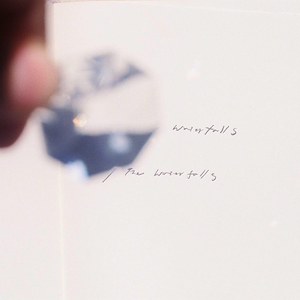 waterfalls
the waterfalls